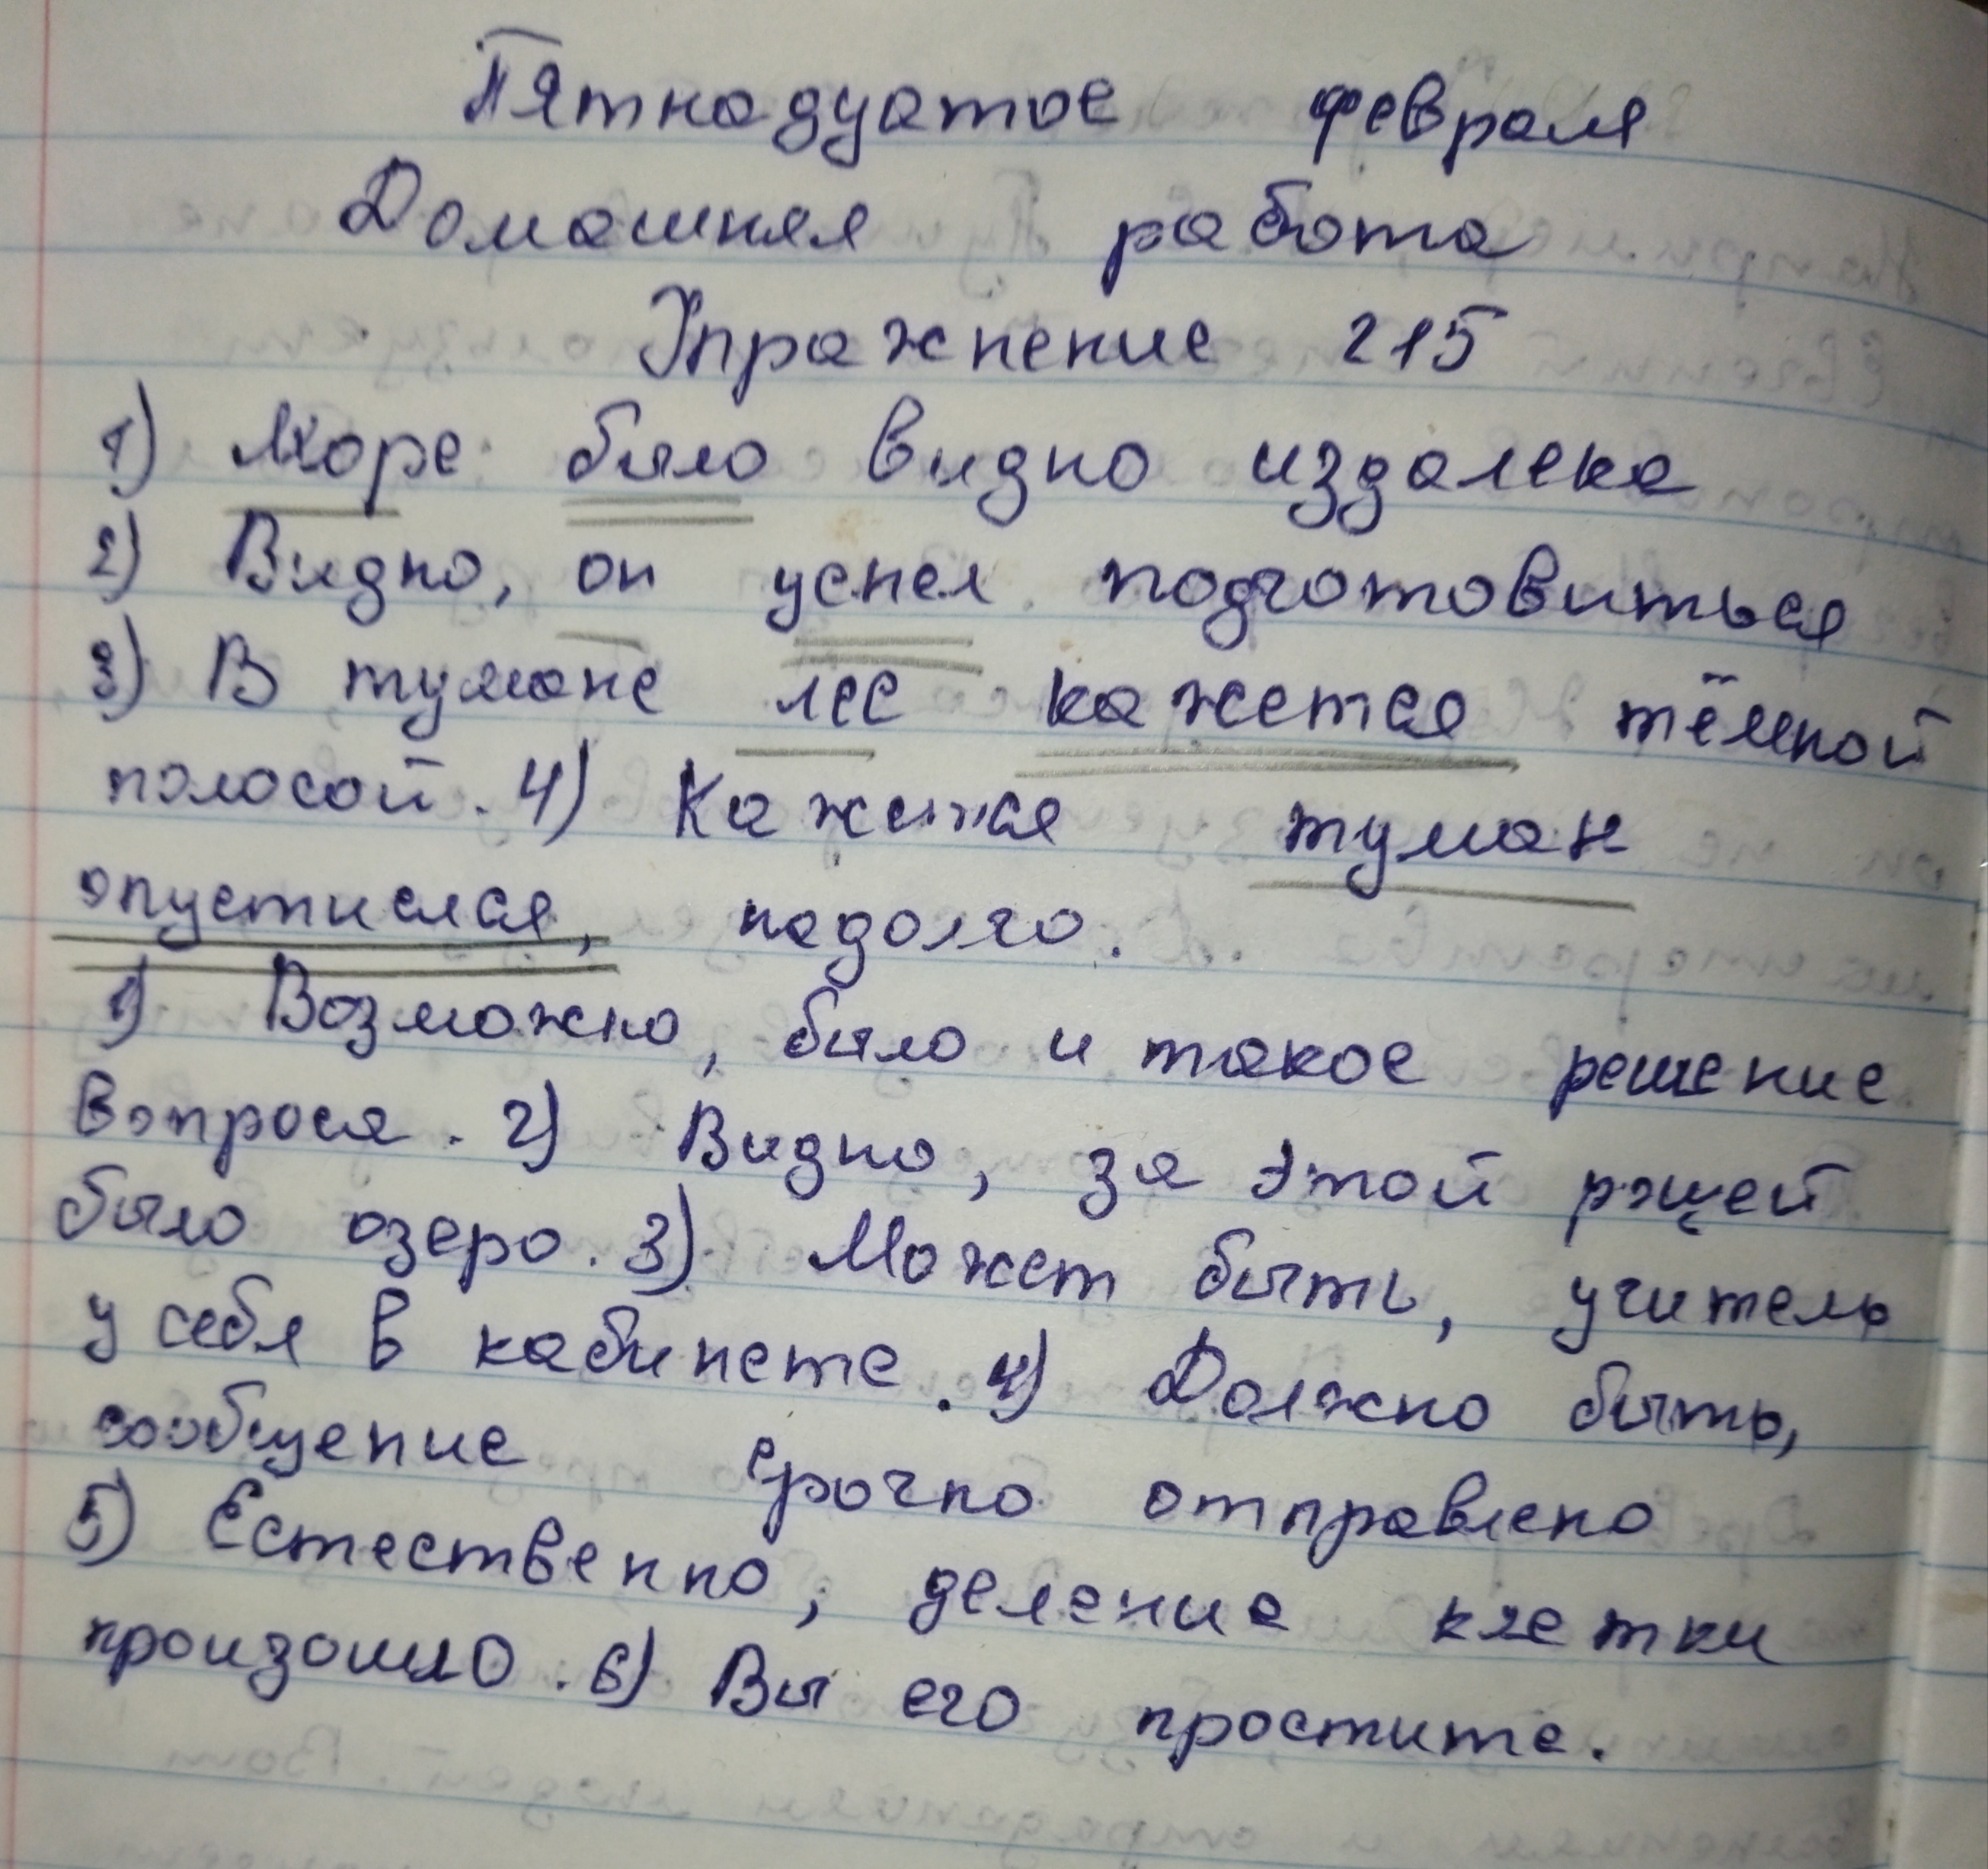 Пятнадцатое февраля
Домашняя работа
Упражнение 215
1) Море было видно издалека
2) Видно, он успел подготовиться
3) В тумане лес кажется тёмной
полосой. 4) Кажится туман
опустился, надолго.
1) Возможно, было и такое решение
вопроса. 2) Видно, за этой рощей
было озеро. 3) Может быть, учитель
у себя в кабинете. 4) Должно быть,
сообщение срочно отправлено
5) Естественно, деление клетки
произошло. 6) Вы его простите.